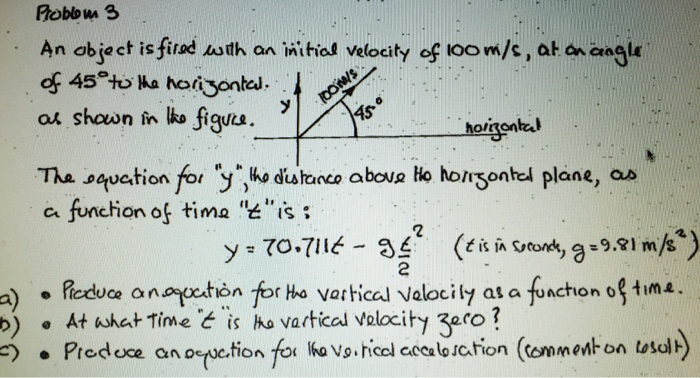 Problem 3
An object is fired with an initial velocity of 100 m/s, at an angle
of 45° to the horizontal.
as shown in the figure.
y
100m/s
45°
horizontal
The equation for "y", the distance above the horizontal plane, as
a function of time "t" is :
y = 70.711t - g t²/2 (t is in seconds, g = 9.81 m/s²)
a) • Produce an equation for the vertical velocity as a function of time.
b) • At what time "t" is the vertical velocity zero?
c) • Produce an equation for the vertical acceleration (comment on result)